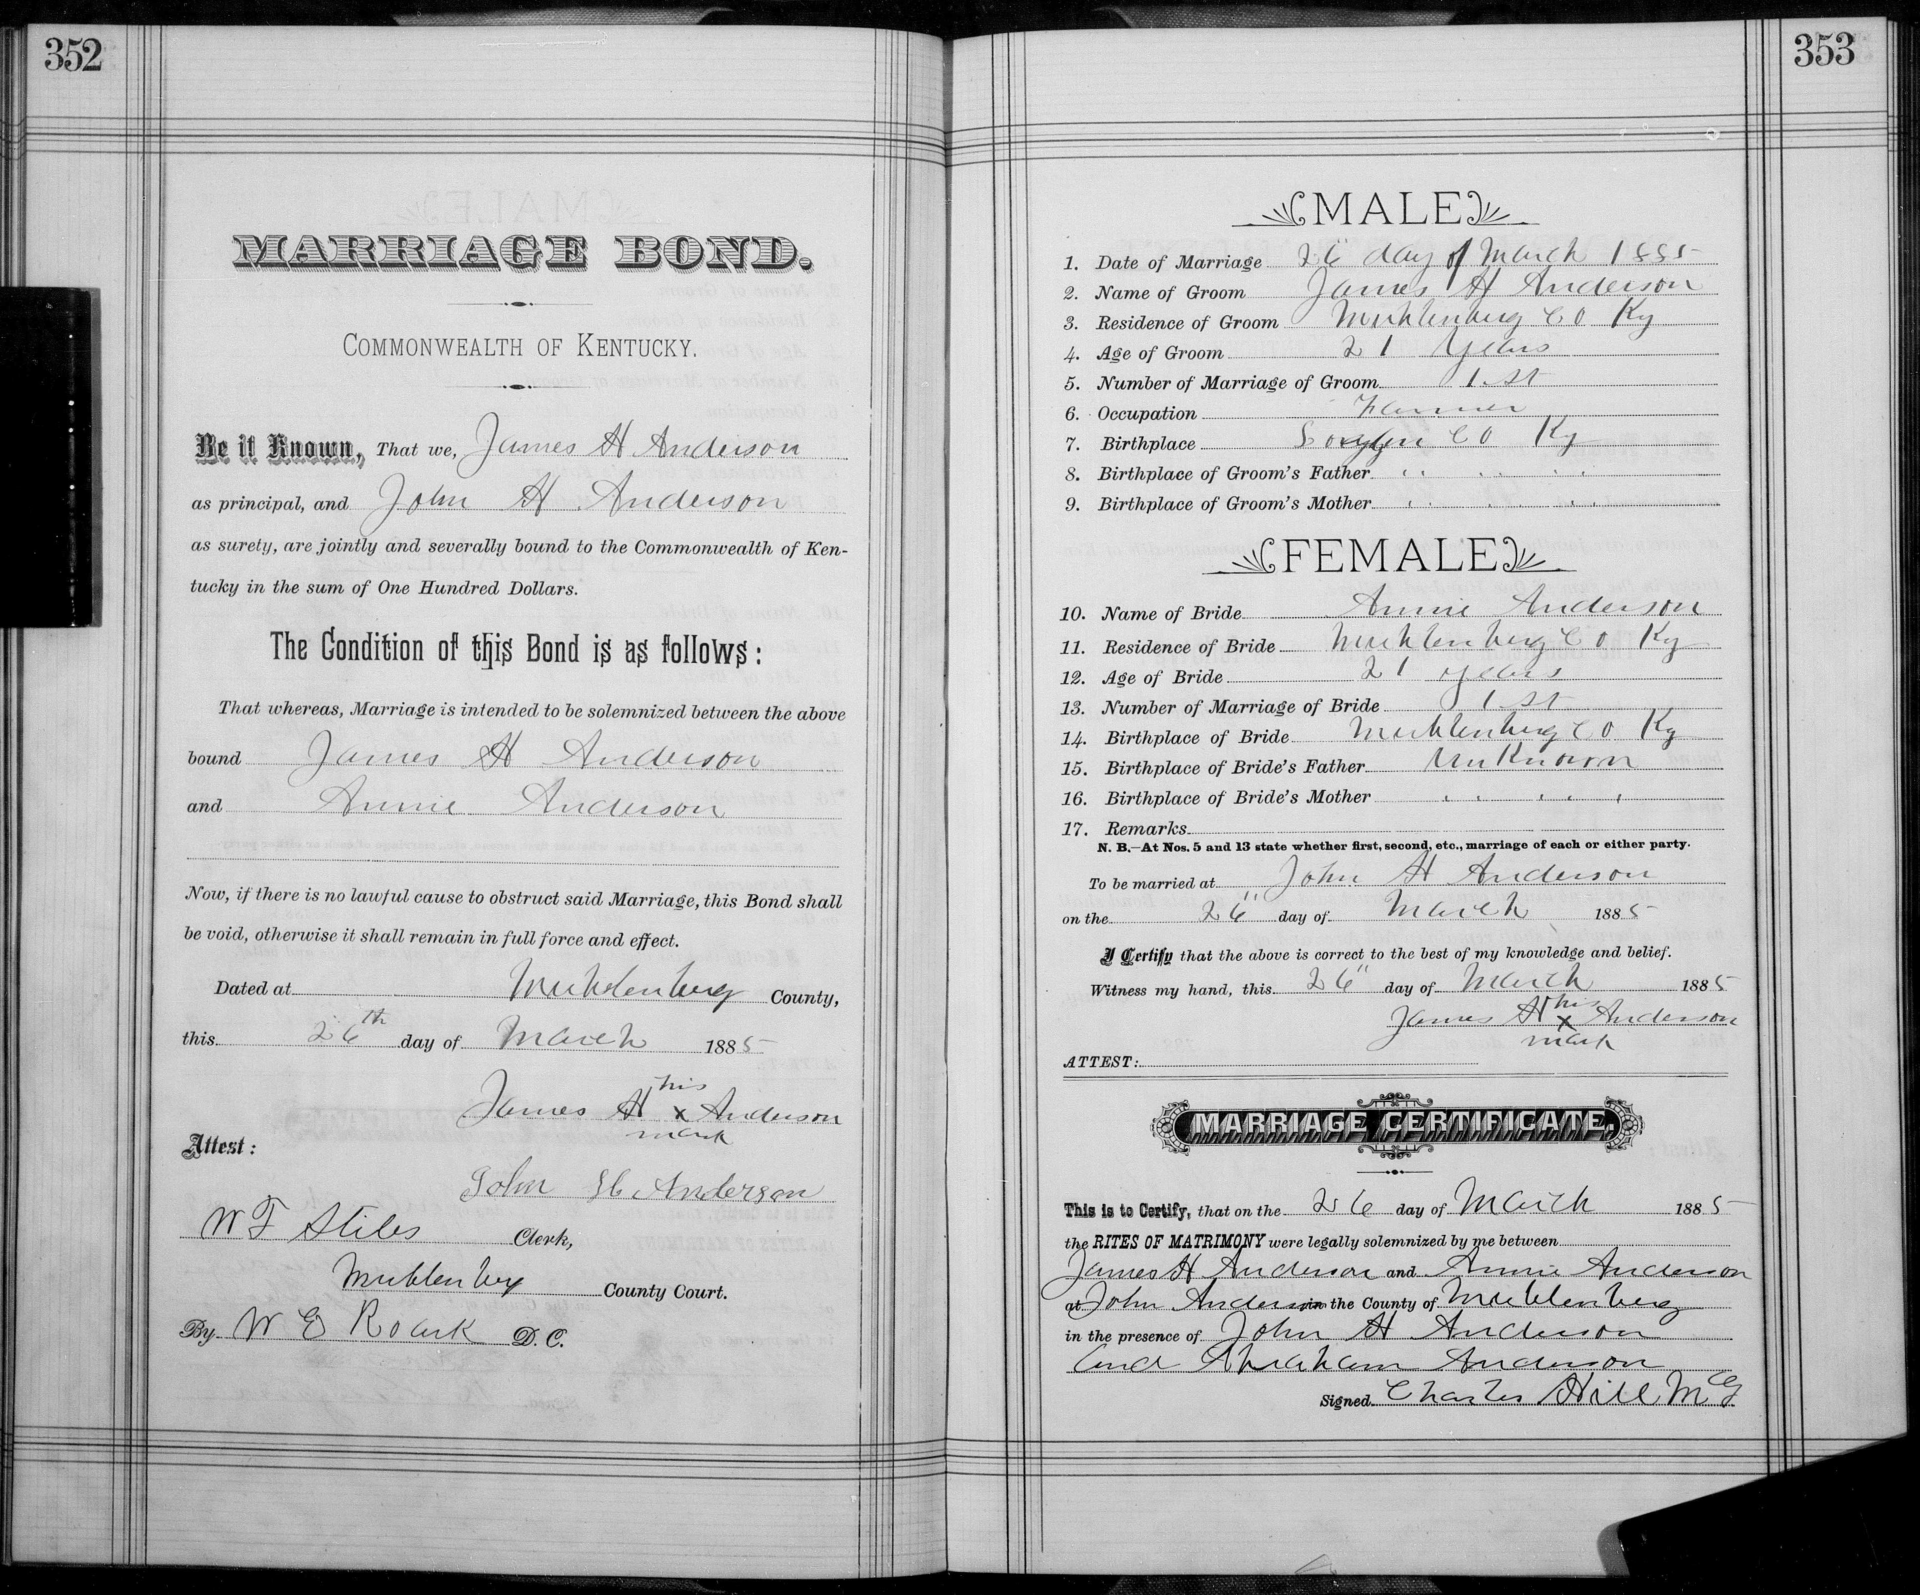 352
MARRIAGE BOND.
COMMONWEALTH OF KENTUCKY.
Be it Known, That we, James H Anderson
as principal, and John H Anderson
as surety, are jointly and severally bound to the Commonwealth of Ken-
tucky in the sum of One Hundred Dollars.
The Condition of this Bond is as follows:
That whereas, Marriage is intended to be solemnized between the above
bound James H Anderson
and Annie Anderson
Now, if there is no lawful cause to obstruct said Marriage, this Bond shall
be void, otherwise it shall remain in full force and effect.
Dated at Muhlenberg County,
this 26th day of March 1885
his
James H x Anderson
mark
Attest:
John H Anderson
W F Stiles Clerk,
Muhlenberg County Court.
By W E Roark D. C.
353
MALE
1. Date of Marriage 26" day of March 1885
2. Name of Groom James H Anderson
3. Residence of Groom Muhlenberg Co Ky
4. Age of Groom 21 years
5. Number of Marriage of Groom 1st
6. Occupation Farmer
7. Birthplace Co Ky
8. Birthplace of Groom's Father " " "
9. Birthplace of Groom's Mother " " "
FEMALE
10. Name of Bride Annie Anderson
11. Residence of Bride Muhlenberg Co Ky
12. Age of Bride 21 years
13. Number of Marriage of Bride 1st
14. Birthplace of Bride Muhlenberg Co Ky
15. Birthplace of Bride's Father Unknown
16. Birthplace of Bride's Mother " " "
17. Remarks
N. B.—At Nos. 5 and 13 state whether first, second, etc., marriage of each or either party.
To be married at John H Anderson
on the 26" day of March 1885
I Certify that the above is correct to the best of my knowledge and belief.
Witness my hand, this 26" day of March 1885
his
James H x Anderson
mark
ATTEST:
MARRIAGE CERTIFICATE.
This is to Certify, that on the 26 day of March 1885
the RITES OF MATRIMONY were legally solemnized by me between
James H Anderson and Annie Anderson
at John Anderson in the County of Muhlenberg
in the presence of John H Anderson
and Abraham Anderson
Signed Charles Hill M G